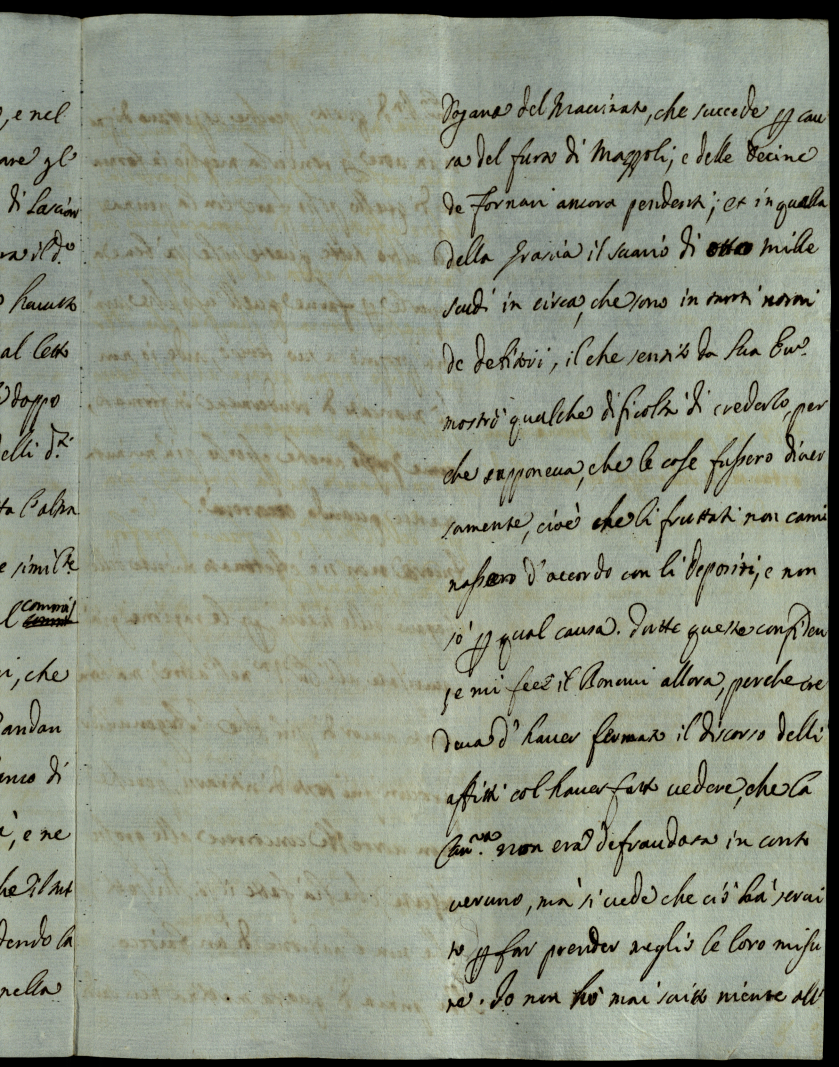 , e nel
are gl
di Lascior
ra il d.o
hauuto
al Letto
doppo
elli d.ti
ta l'altra
e simil.te
l commis
i, che
andan
enso di
, e ne
che il me
dendo la
nella
Dogana del Macinato, che succede p cau
sa del furto di Mazzoli, e delle Decine
de Fornari ancora pendenti; et in quella
della Grascia il suario di otto mille
scudi in circa, che sono in tanti nomi
de debitori, il che sentito da Sua Em.a
mostrò qualche dificoltà di crederlo, per
che supponeua, che le cose fussero diuer
samente, cioè che li fruttati non cami
nassero d'accordo con li Depositi, e non
sò p qual causa. Tutte queste confiden
ze mi fece il Bonomi allora, perche cre
deua d'hauer fermato il discorso delli
affitti col hauer fatto uedere, che la
Cam.ra non era defraudata in conto
ueruno, mà si uede che ciò hà serui
to p far prender meglio le loro misu
re. Io non hò mai scritto niente all'